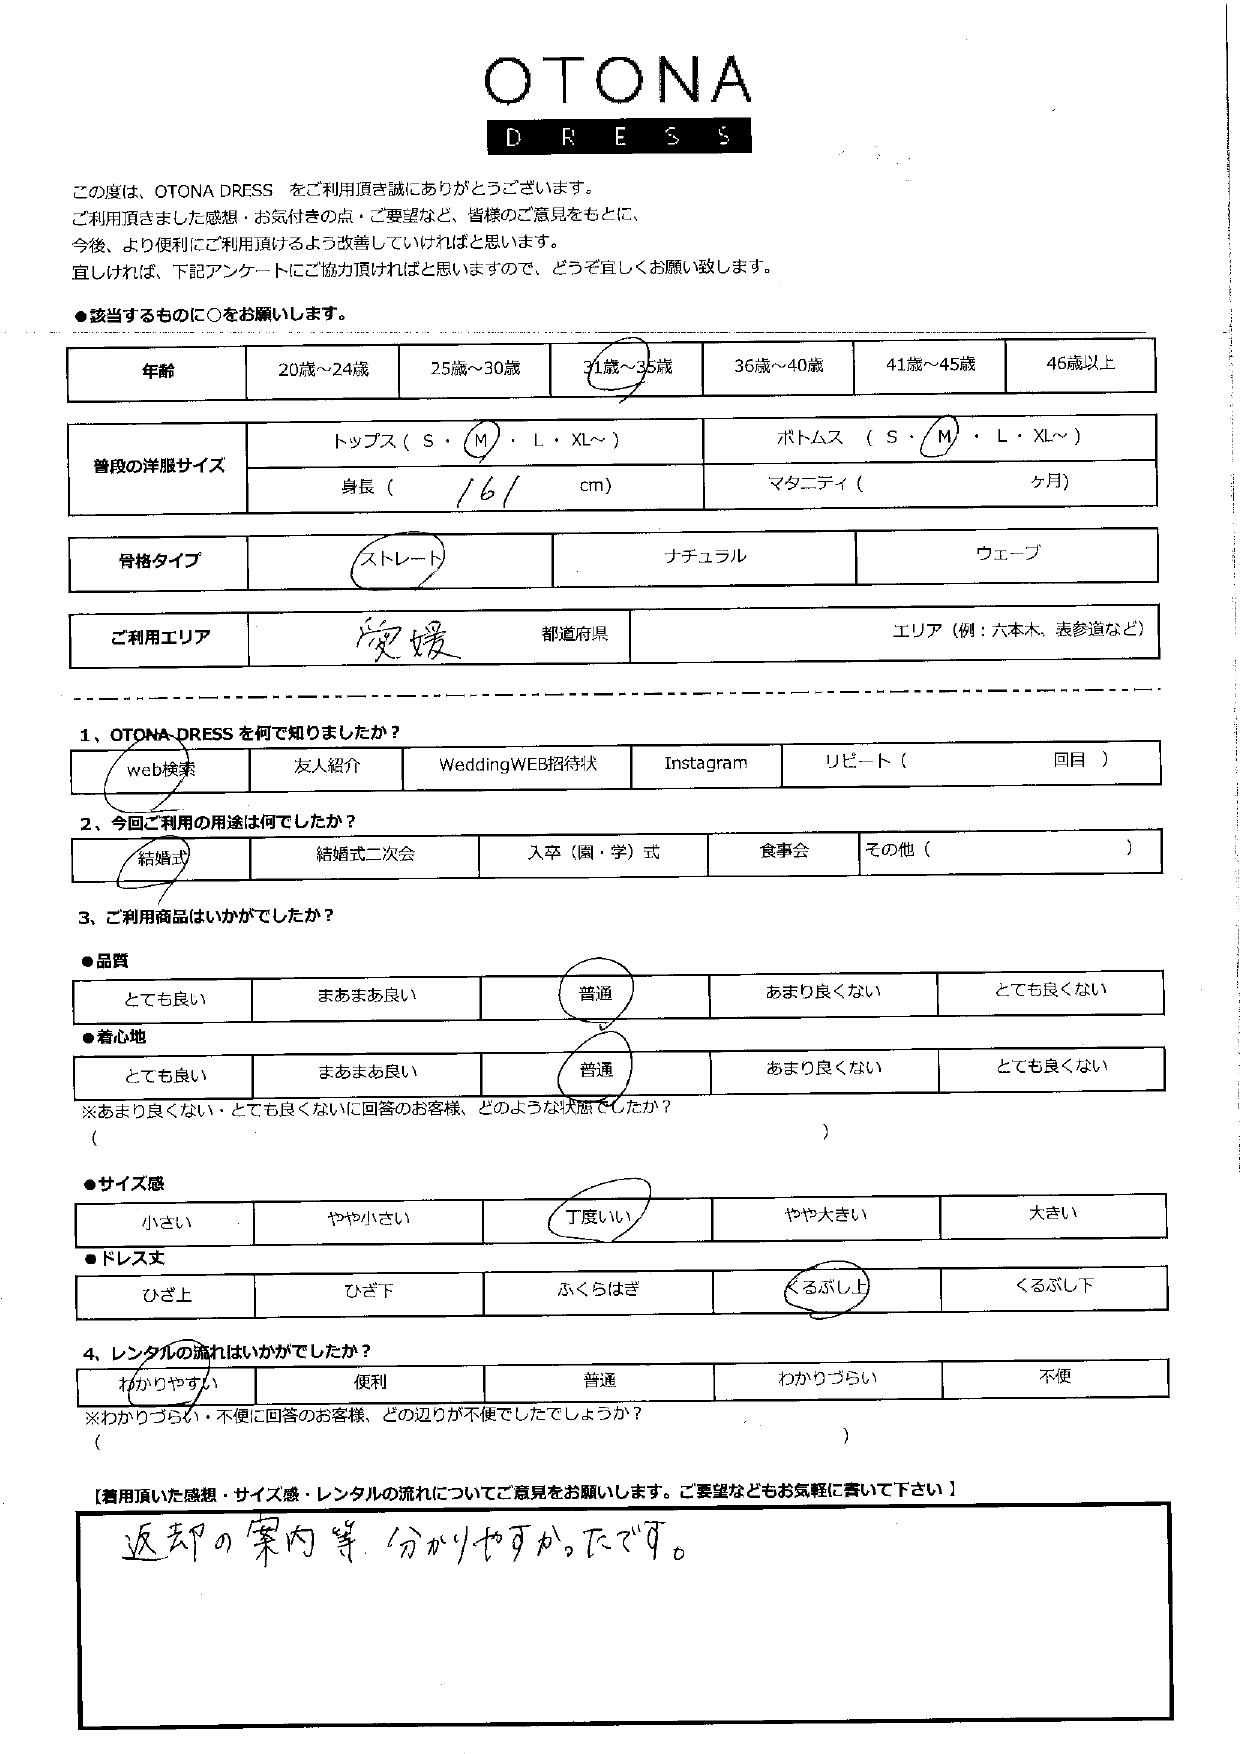 OTONA
DRESS
この度は、OTONA DRESS をご利用頂き誠にありがとうございます。
ご利用頂きました感想・お気付きの点・ご要望など、皆様のご意見をもとに、
今後、より便利にご利用頂けるよう改善していければと思います。
宜しければ、下記アンケートにご協力頂ければと思いますので、どうぞ宜しくお願い致します。
●該当するものに○をお願いします。
年齢 20歳～24歳 25歳～30歳 31歳～35歳 36歳～40歳 41歳～45歳 46歳以上
普段の洋服サイズ トップス ( S ・ M ・ L ・ XL～ ) ボトムス ( S ・ M ・ L ・ XL～ )
身長 ( 161 cm) マタニティ ( ヶ月)
骨格タイプ ストレート ナチュラル ウェーブ
ご利用エリア 愛媛 都道府県 エリア（例：六本木、表参道など）
1、OTONA DRESS を何で知りましたか？
web検索 友人紹介 WeddingWEB招待状 Instagram リピート ( 回目 )
2、今回ご利用の用途は何でしたか？
結婚式 結婚式二次会 入卒（園・学）式 食事会 その他 ( )
3、ご利用商品はいかがでしたか？
●品質
とても良い まあまあ良い 普通 あまり良くない とても良くない
●着心地
とても良い まあまあ良い 普通 あまり良くない とても良くない
※あまり良くない・とても良くないに回答のお客様、どのような状態でしたか？
( )
●サイズ感
小さい やや小さい 丁度いい やや大きい 大きい
●ドレス丈
ひざ上 ひざ下 ふくらはぎ くるぶし上 くるぶし下
4、レンタルの流れはいかがでしたか？
わかりやすい 便利 普通 わかりづらい 不便
※わかりづらい・不便に回答のお客様、どの辺りが不便でしたでしょうか？
( )
【着用頂いた感想・サイズ感・レンタルの流れについてご意見をお願いします。ご要望などもお気軽に書いて下さい】
返却の案内等、分かりやすかったです。